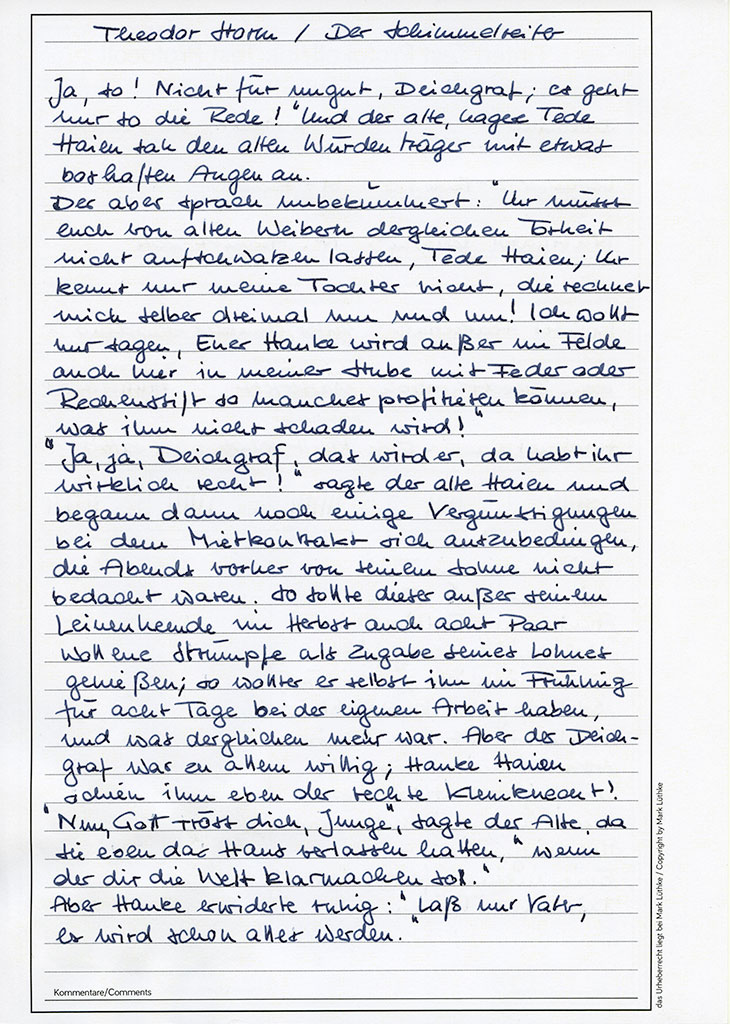 Theodor Storm / Der Schimmelreiter
Ja, so! Nicht für ungut, Deichgraf; es geht
nur so die Rede!" Und der alte, hagere Tede
Haien sah den alten Würdenträger mit etwas
boshaften Augen an.
Der aber sprach unbekümmert: "Ihr müsst
euch von alten Weibern dergleichen Torheit
nicht aufschwatzen lassen, Tede Haien; Ihr
kennt nur meine Tochter nicht, die rechnet
mich selber dreimal um und um! Ich wollt
nur sagen, Euer Hauke wird außer im Felde
auch hier in meiner Stube mit Feder oder
Rechenstift so manches profitieren können,
was ihm nicht schaden wird!"
"Ja, ja, Deichgraf, das wird er, da habt ihr
wirklich recht!" sagte der alte Haien und
begann dann noch einige Vergünstigungen
bei dem Mietkontrakt sich auszubedingen,
die Abends vorher von seinem Sohne nicht
bedacht waren. So sollte dieser außer seinem
Leinenhemde im Herbst auch acht Paar
wollene Strümpfe als Zugabe seines Lohnes
genießen; so wollte er selbst ihn im Frühling
für acht Tage bei der eigenen Arbeit haben,
und was dergleichen mehr war. Aber der Deich-
graf war zu allem willig; Hauke Haien
schien ihm eben der rechte Kleinknecht!
"Nun, Gott tröst dich, Junge", sagte der Alte, da
sie eben das Haus verlassen hatten, "wenn
der dir die Welt klarmachen soll."
Aber Hauke erwiderte ruhig: "Laß nur Vater,
es wird schon alles werden."
Kommentare/Comments
das Urheberrecht liegt bei Mark Lüthke / Copyright by Mark Lüthke